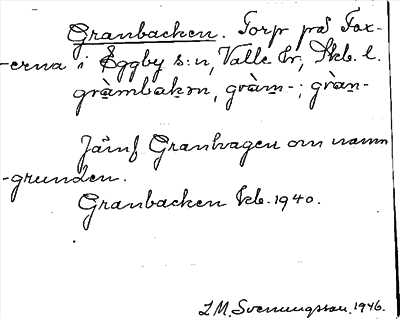 Granbacken. Torp på Tox-
-erna i Eggby s:n, Valle hr, Skb. l.
gràmbakən, gràm-; gràn-
Jämf Granhagen om namn
-grunden.
Granbacken kb. 1940.
L M. Svenungsson. 1946.